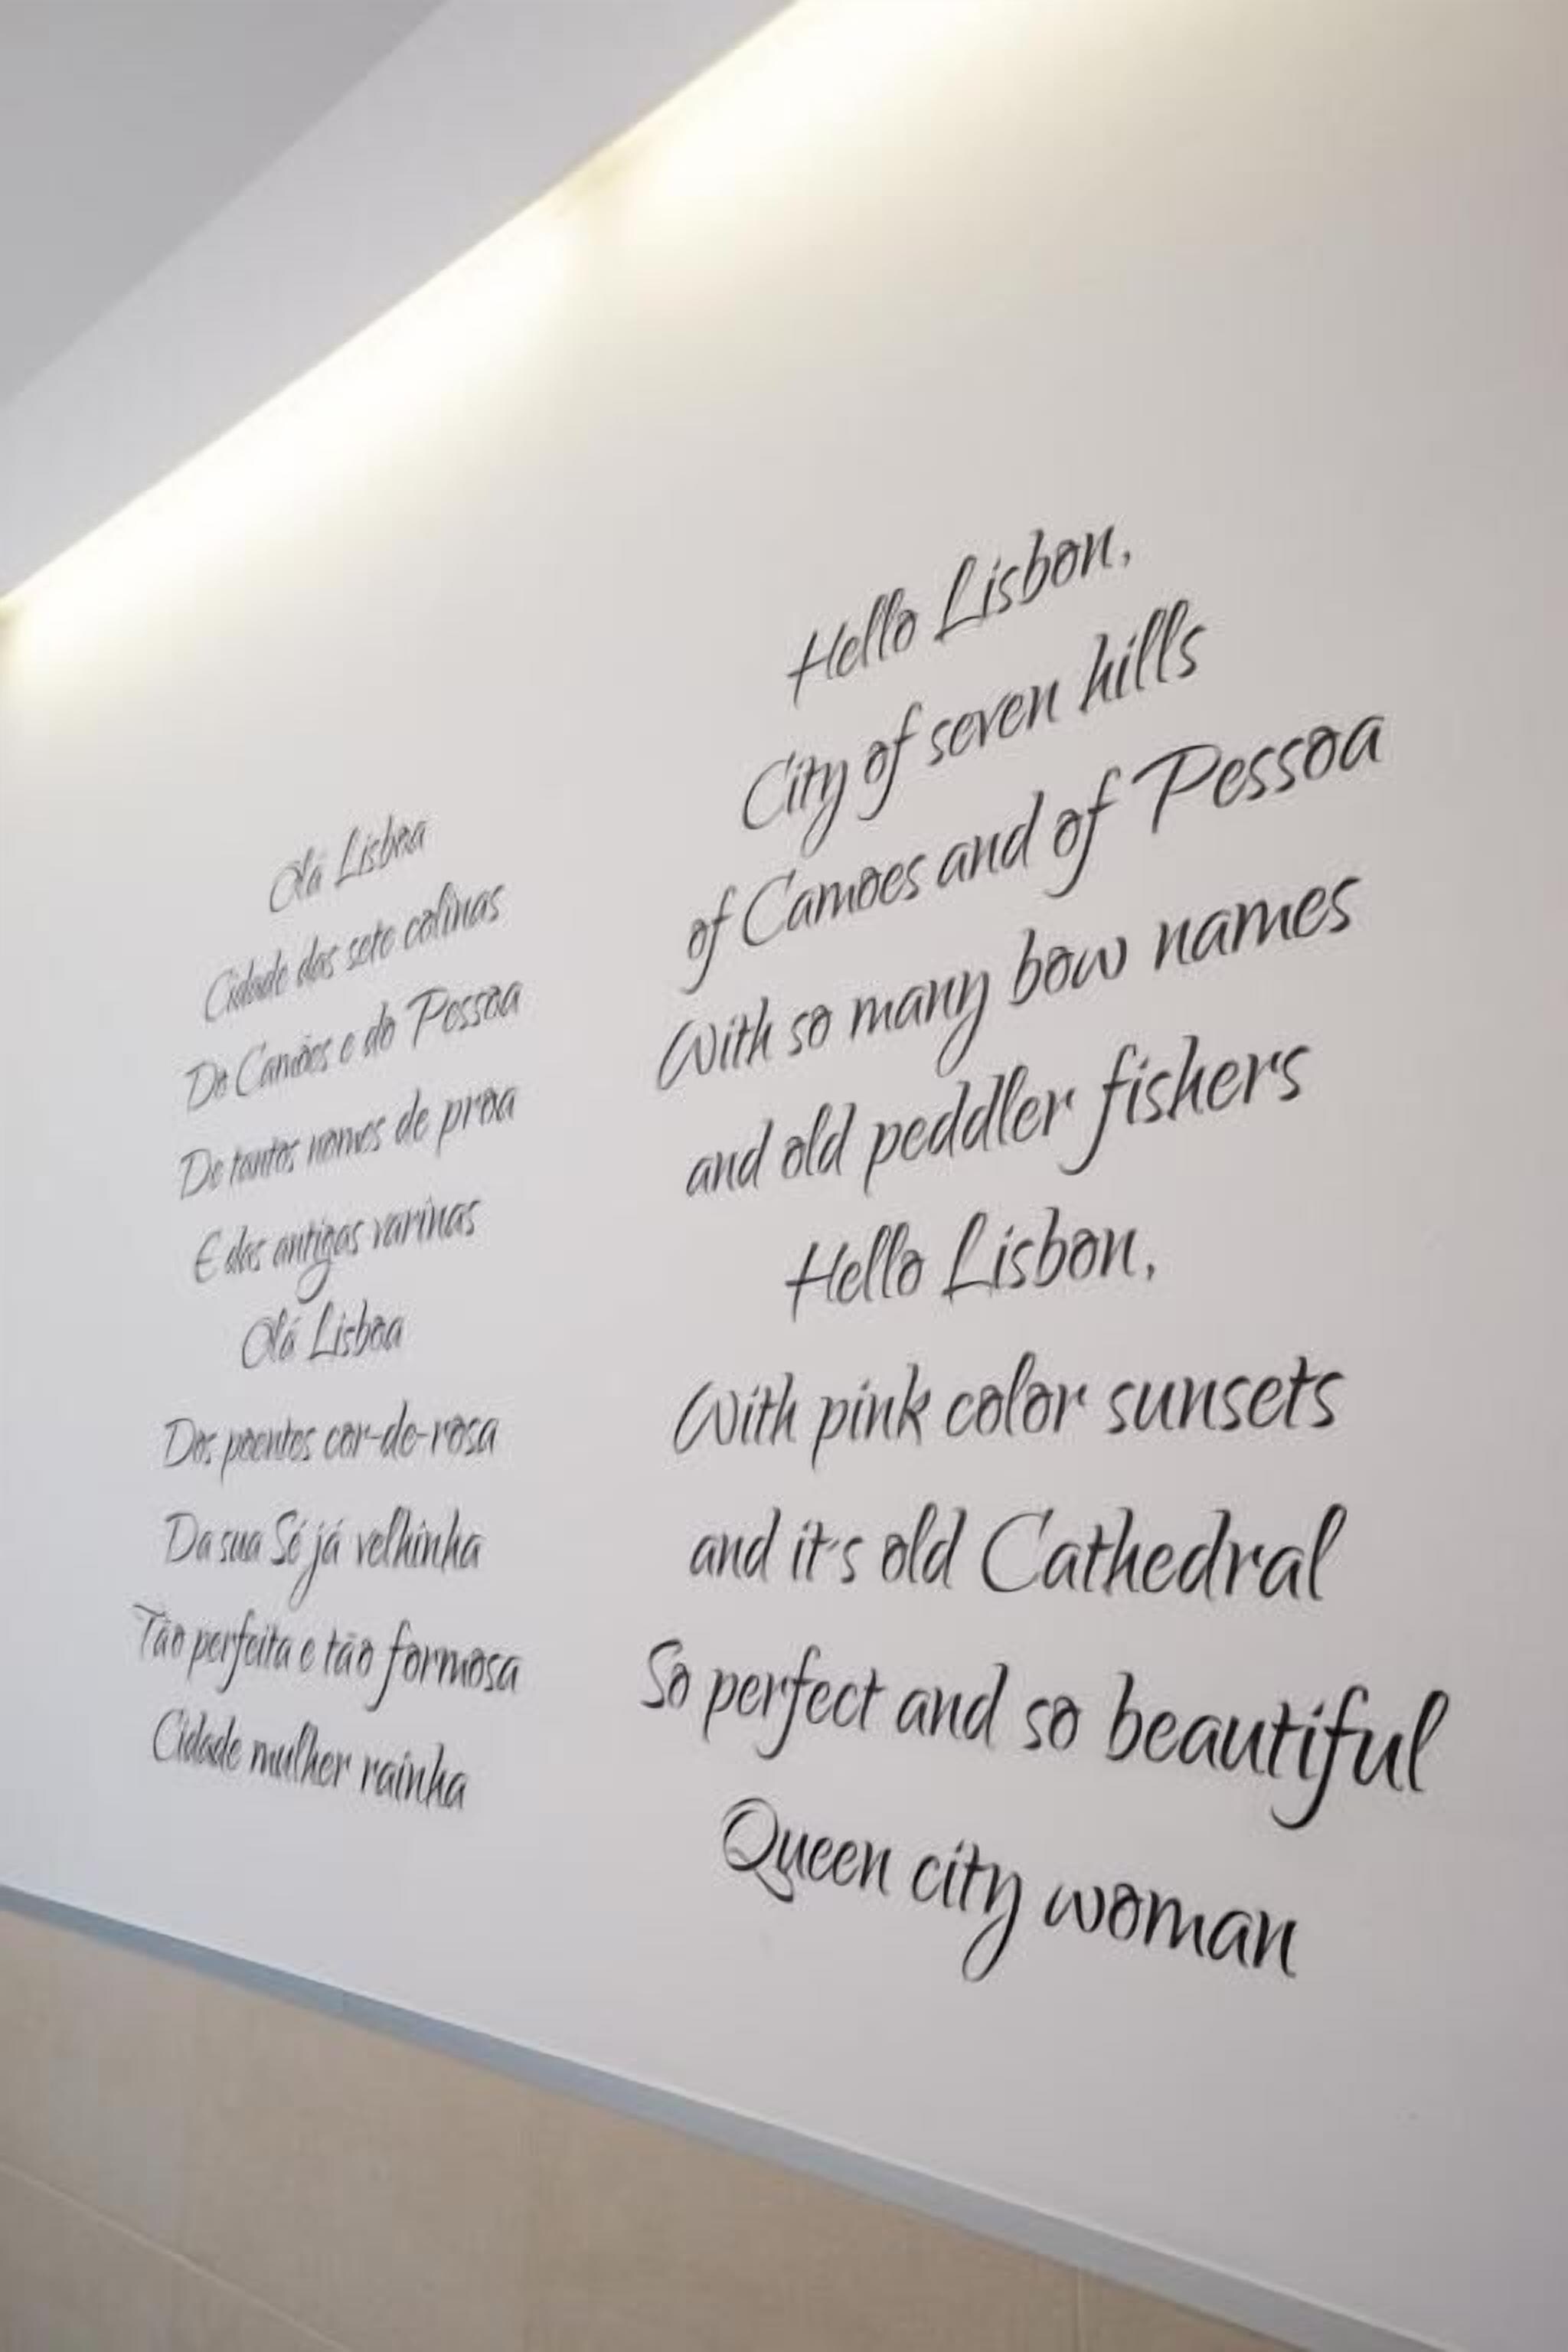 Olá Lisboa
Cidade das sete colinas
De Camões e do Pessoa
De tantos nomes de proa
E das antigas varinas
Olá Lisboa
Dos poentes cor-de-rosa
Da sua Sé já velhinha
Tão perfeita e tão formosa
Cidade mulher rainha
Hello Lisbon,
City of seven hills
of Camoes and of Pessoa
With so many bow names
and old peddler fishers
Hello Lisbon,
With pink color sunsets
and it's old Cathedral
So perfect and so beautiful
Queen city woman